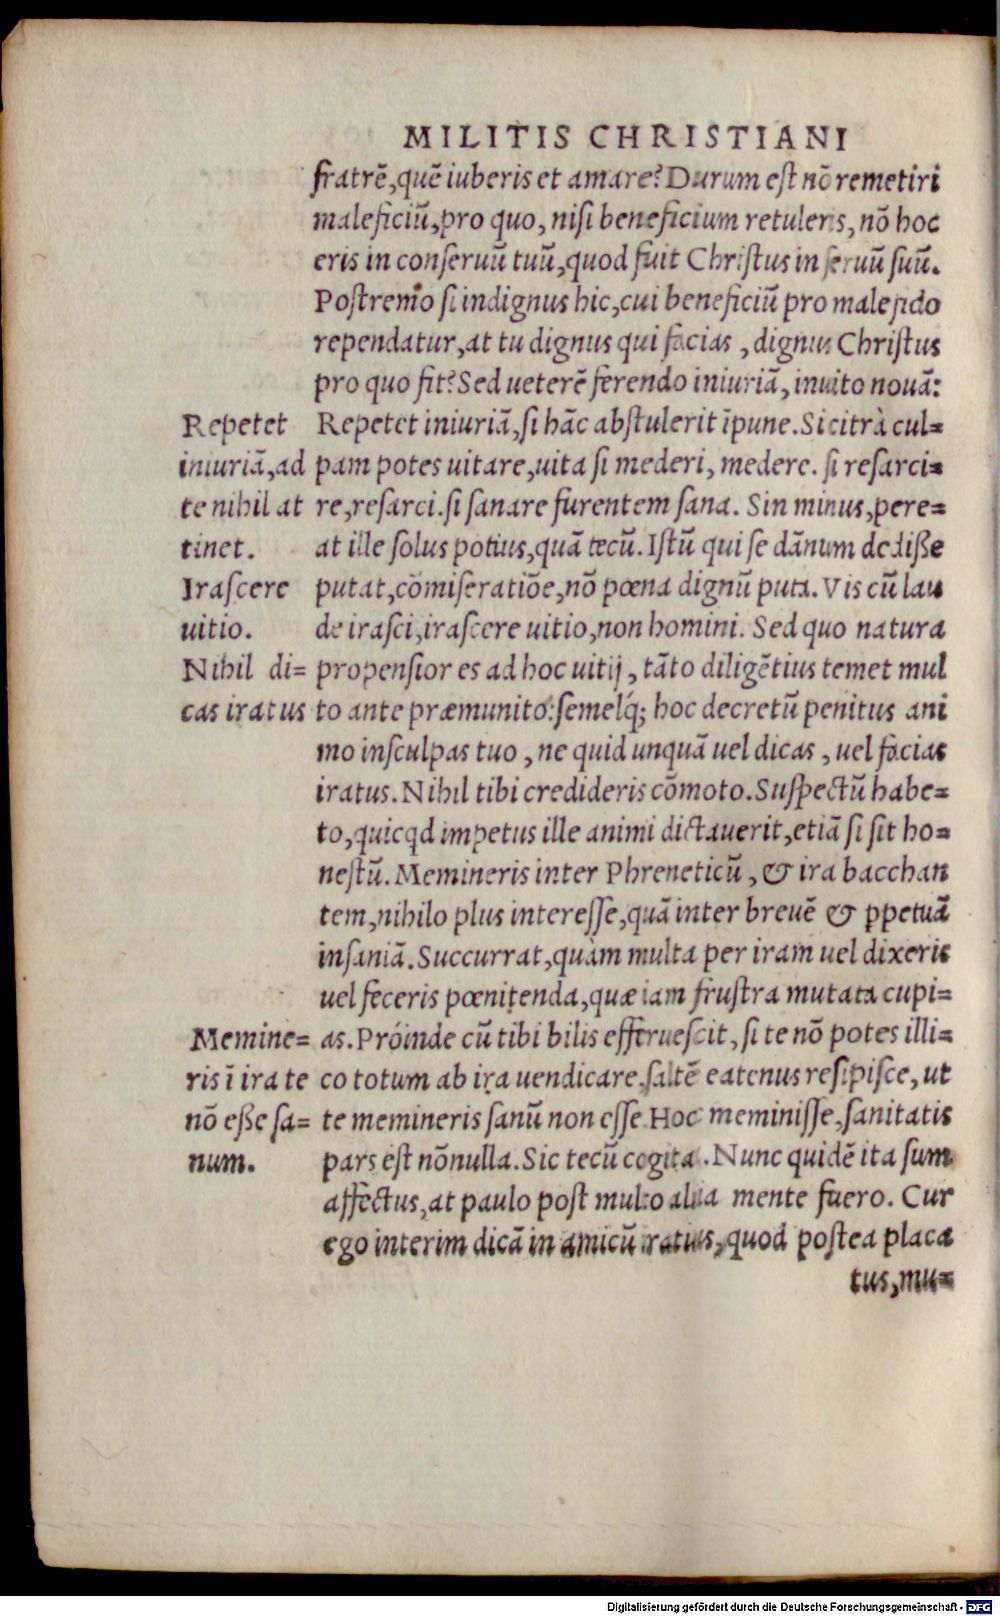 MILITIS CHRISTIANI
fratrē,quē iuberis et amare? Durum est nō remetiri
maleficiū,pro quo, nisi beneficium retuleris, nō hoc
eris in conseruū tuū,quod fuit Christus in seruū suū.
Postremo si indignus hic,cui beneficiū pro maleficio
rependatur,at tu dignus qui facias , dignus Christus
pro quo fit? Sed ueterē ferendo iniuriā, inuito nouā:
Repetet iniuriā,si hāc abstulerit īpune. Si citrà cul=
pam potes uitare,uita si mederi, medere. si resarci=
re,resarci.si sanare furentem sana. Sin minus,pere=
at ille solus potius,quā tecū. Istū qui se dānum dediße
putat,cōmiseratiōe,nō pœna dignū puta. Vis cū lau
de irasci,irascere uitio,non homini. Sed quo natura
propensior es ad hoc uitij , tāto diligētius temet mul
to ante præmunito:semelq́; hoc decretū penitus ani
mo insculpas tuo , ne quid unquā uel dicas , uel facias
iratus. Nihil tibi credideris cōmoto. Suspectū habe=
to,quicqd impetus ille animi dictauerit,etiā si sit ho=
nestū. Memineris inter Phreneticū , & ira bacchan
tem,nihilo plus interesse,quā inter breuē & ꝑpetuā
insaniā. Succurrat,quàm multa per iram uel dixeris
uel feceris pœnitenda,quæ iam frustra mutata cupi=
as. Próinde cū tibi bilis efferuescit, si te nō potes illi=
co totum ab ira uendicare.saltē eatenus resipisce, ut
te memineris sanū non esse. Hoc meminisse,sanitatis
pars est nōnulla. Sic tecū cogita . Nunc quidē ita sum
affectus,at paulo post multo alia mente fuero. Cur
ego interim dicā in amicū iratus,quod postea placa
tus,mu=
Repetet
iniuriā,ad
te nihil at
tinet.
Irascere
uitio.
Nihil di=
cas iratus
Memine=
ris ī ira te
nō eße sa=
num.
Digitalisierung gefördert durch die Deutsche Forschungsgemeinschaft - DFG